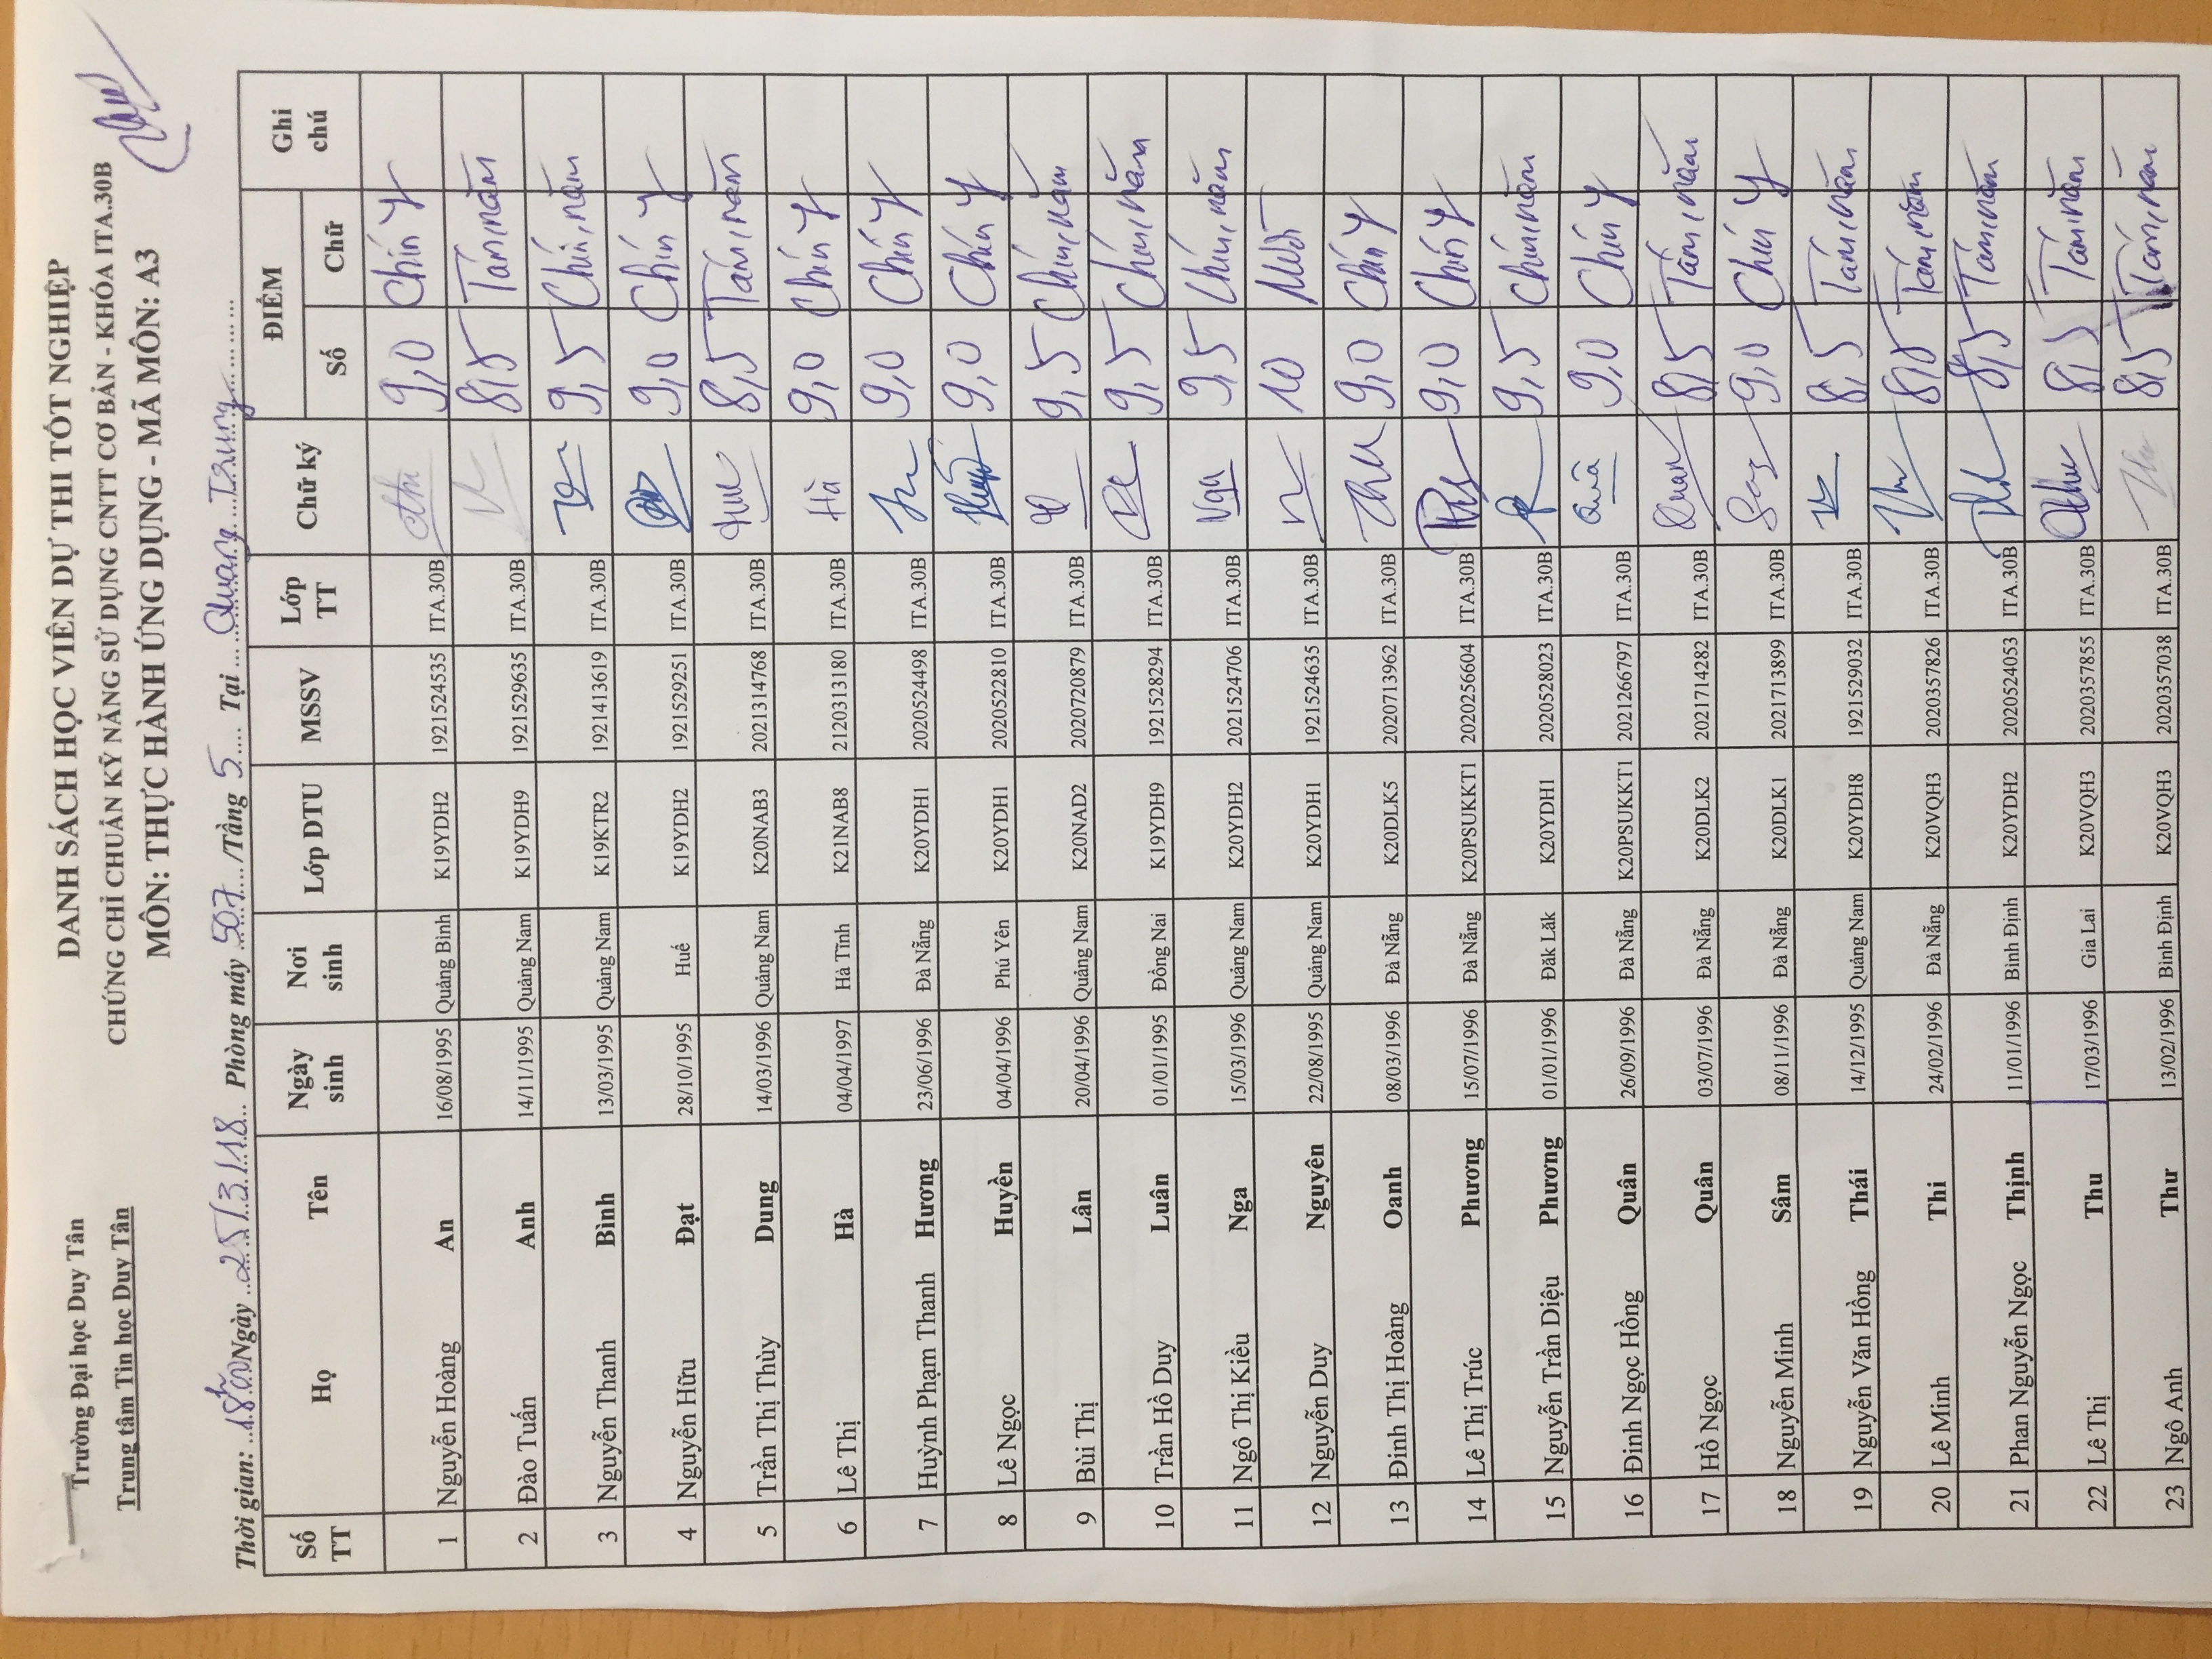 Trường Đại học Duy Tân
Trung tâm Tin học Duy Tân
DANH SÁCH HỌC VIÊN DỰ THI TỐT NGHIỆP
CHỨNG CHỈ CHUẨN KỸ NĂNG SỬ DỤNG CNTT CƠ BẢN - KHÓA ITA.30B
MÔN: THỰC HÀNH ỨNG DỤNG - MÃ MÔN: A3
Thời gian: 18h00 Ngày 25/3/18 Phòng máy 507 /Tầng 5 Tại Quang Trung
Số TT Họ Tên Ngày sinh Nơi sinh Lớp DTU MSSV Lớp TT Chữ ký ĐIỂM Số Chữ Ghi chú
1 Nguyễn Hoàng An 16/08/1995 Quảng Bình K19YDH2 1921524535 ITA.30B 9,0 Chín
2 Đào Tuấn Anh 14/11/1995 Quảng Nam K19YDH9 1921529635 ITA.30B 8,5 Tám, năm
3 Nguyễn Thanh Bình 13/03/1995 Quảng Nam K19KTR2 1921413619 ITA.30B 9,5 Chín, năm
4 Nguyễn Hữu Đạt 28/10/1995 Huế K19YDH2 1921529251 ITA.30B 9,0 Chín
5 Trần Thị Thùy Dung 14/03/1996 Quảng Nam K20NAB3 2021314768 ITA.30B 8,5 Tám, năm
6 Lê Thị Hà 04/04/1997 Hà Tĩnh K21NAB8 2120313180 ITA.30B Hà 9,0 Chín
7 Huỳnh Phạm Thanh Hương 23/06/1996 Đà Nẵng K20YDH1 2020524498 ITA.30B 9,0 Chín
8 Lê Ngọc Huyền 04/04/1996 Phú Yên K20YDH1 2020522810 ITA.30B 9,0 Chín
9 Bùi Thị Lân 20/04/1996 Quảng Nam K20NAD2 2020720879 ITA.30B 9,5 Chín, năm
10 Trần Hồ Duy Luân 01/01/1995 Đồng Nai K19YDH9 1921528294 ITA.30B 9,5 Chín, năm
11 Ngô Thị Kiều Nga 15/03/1996 Quảng Nam K20YDH2 2021524706 ITA.30B Nga 9,5 Chín, năm
12 Nguyễn Duy Nguyên 22/08/1995 Quảng Nam K20YDH1 1921524635 ITA.30B 10 Mười
13 Đinh Thị Hoàng Oanh 08/03/1996 Đà Nẵng K20DLK5 2020713962 ITA.30B 9,0 Chín
14 Lê Thị Trúc Phương 15/07/1996 Đà Nẵng K20PSUKKT1 2020256604 ITA.30B 9,0 Chín
15 Nguyễn Trần Diệu Phương 01/01/1996 Đăk Lăk K20YDH1 2020528023 ITA.30B 9,5 Chín, năm
16 Đinh Ngọc Hồng Quân 26/09/1996 Đà Nẵng K20PSUKKT1 2021266797 ITA.30B 9,0 Chín
17 Hồ Ngọc Quân 03/07/1996 Đà Nẵng K20DLK2 2021714282 ITA.30B 8,5 Tám, năm
18 Nguyễn Minh Sâm 08/11/1996 Đà Nẵng K20DLK1 2021713899 ITA.30B 9,0 Chín
19 Nguyễn Văn Hồng Thái 14/12/1995 Quảng Nam K20YDH8 1921529032 ITA.30B 8,5 Tám, năm
20 Lê Minh Thi 24/02/1996 Đà Nẵng K20VQH3 2020357826 ITA.30B 8,5 Tám, năm
21 Phan Nguyễn Ngọc Thịnh 11/01/1996 Bình Định K20YDH2 2020524053 ITA.30B 8,5 Tám, năm
22 Lê Thị Thu 17/03/1996 Gia Lai K20VQH3 2020357855 ITA.30B 8,5 Tám, năm
23 Ngô Anh Thư 13/02/1996 Bình Định K20VQH3 2020357038 ITA.30B 8,5 Tám, năm